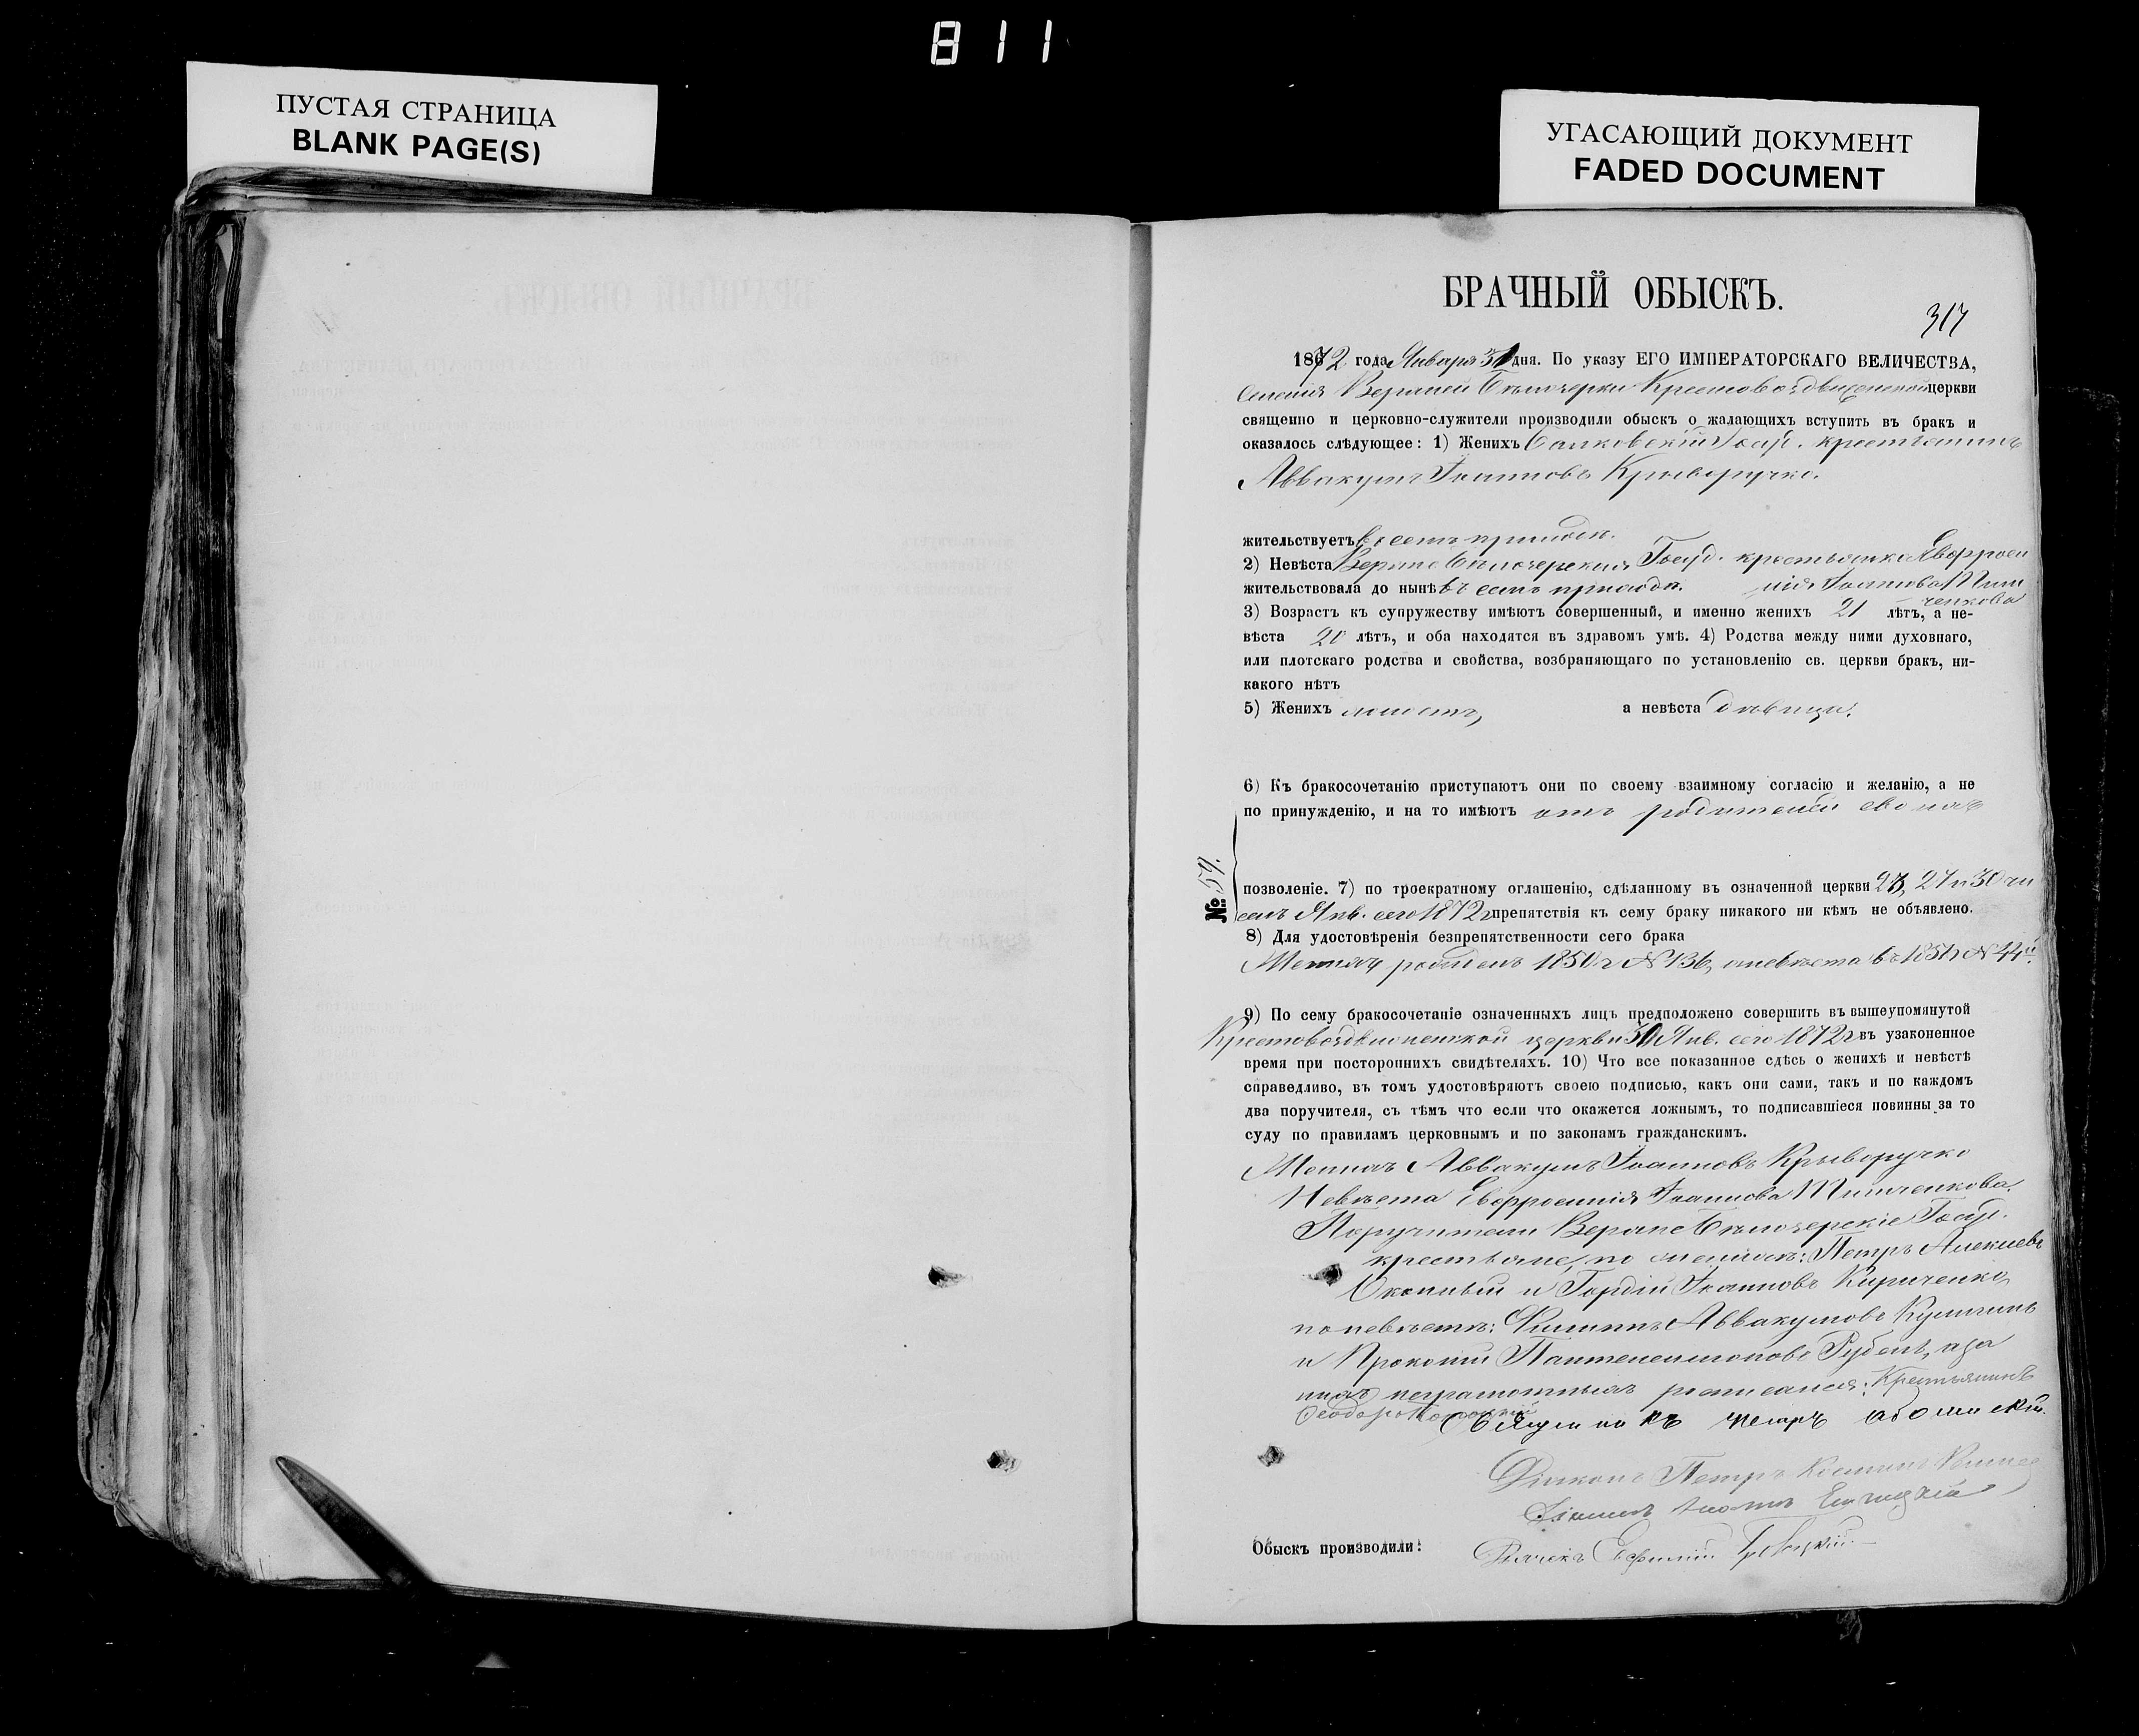 811
ПУСТАЯ СТРАНИЦА
BLANK PAGE(S)
УГАСАЮЩИЙ ДОКУМЕНТ
FADED DOCUMENT
БРАЧНЫЙ ОБЫСКЪ.
317
1872 года Января 31 дня. По указу ЕГО ИМПЕРАТОРСКАГО ВЕЛИЧЕСТВА,
Селенія Верхней Бѣлозерки Крестовоздвиженской церкви
священно и церковно-служители производили обыскъ о жалающихъ вступить въ бракъ и
оказалось слѣдующее: 1) Женихъ Балковскій Госуд. крестьянинъ
Аввакумъ Іоанновъ Криворучко.
жительствуетъ въ семъ приходѣ.
2) Невѣста Верхне Бѣлозерская Госуд. крестьянка Евфроси
жительствовала до нынѣ въ семъ приходѣ. нія Іоаннова
3) Возрастъ къ супружеству имѣютъ совершенный, и именно женихъ 21 лѣтъ, а не-
вѣста 20 лѣтъ, и оба находятся въ здравомъ умѣ. 4) Родства между ними духовнаго,
или плотскаго родства и свойства, возбраняющаго по установленію св. церкви бракъ, ни-
какого нѣтъ
5) Женихъ холостъ, а невѣста дѣвица.
6) Къ бракосочетанію приступаютъ они по своему взаимному согласію и желанію, а не
по принужденію, и на то имѣютъ отъ родителей своихъ
№ 59.
позволеніе. 7) по троекратному оглашенію, сдѣланному въ означенной церкви 23, 27 и 30 чи
селъ Янв. сего 1872 г. препятствія къ сему браку никакого ни кѣмъ не объявлено.
8) Для удостовѣренія безпрепятственности сего брака
Женихъ рожденъ 1850 г. № 136, а невѣста въ 1851 г. № 44й.
9) По сему бракосочетаніе означенныхъ лицъ предположено совершить въ вышеупомянутой
Крестовоздвиженской церкви Янв. сего 1872 г. въ узаконенное
время при постороннихъ свидѣтеляхъ. 10) Что все показанное сдѣсь о женихѣ и невѣстѣ
справедливо, въ томъ удостовѣряютъ своею подписью, какъ они сами, такъ и по каждомъ
два поручителя, съ тѣмъ что если что окажется ложнымъ, то подписавшіеся повинны за то
суду по правиламъ церковнымъ и по законамъ гражданскимъ.
Женихъ Аввакумъ Іоанновъ Криворучко
Невѣста Евфросинія Іоаннова
Поручители Верхне Бѣлозерскіе Госуд.
крестьяне, по женихѣ: Петръ Алексіевъ
и Гордій Іоанновъ Кириченко,
по невѣстѣ: Филиппъ Аввакумовъ
и Прокопій Пантелеимоновъ Рубель, а за
нихъ неграмотныхъ росписался: Крестьянинъ
Ѳеодоръ
Священникъ Петръ
Діаконъ Петръ
Обыскъ производили: